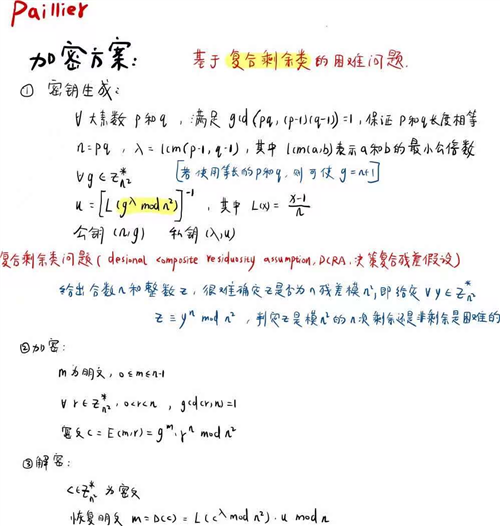 Paillier
加密方案: 基于复合剩余类的困难问题.
① 密钥生成:
∀ 大素数 p和q , 满足 gcd(pq, (p-1)(q-1))=1, 保证 p和q长度相等
n=pq , λ = lcm(p-1, q-1), 其中 lcm(a,b)表示a和b的最小公倍数
∀g∈Z*n² [若使用等长的p和q, 则可使 g=n+1]
u = [L(g^λ mod n²)]^-1 , 其中 L(x) = (x-1)/n
公钥 (n, g) 私钥 (λ, u)
复合剩余类问题 ( desional composite residuosity assumption, DCRA, 决策复合残差假设)
给出合数n和整数z, 很难确定z是否为n残差模n², 即给定 ∀ y∈Z*n²
z ≡ y^n mod n² , 判定z是模n²的n次剩余还是非剩余是困难的
②加密:
m为明文, 0≤m≤n-1
∀ r∈Z*n² , 0<r<n , gcd(r,n)=1
密文 c = E(m,r) = g^m · r^n mod n²
③解密:
c∈Z*n² 为密文
恢复明文 m = D(c) = L(c^λ mod n²) · u mod n